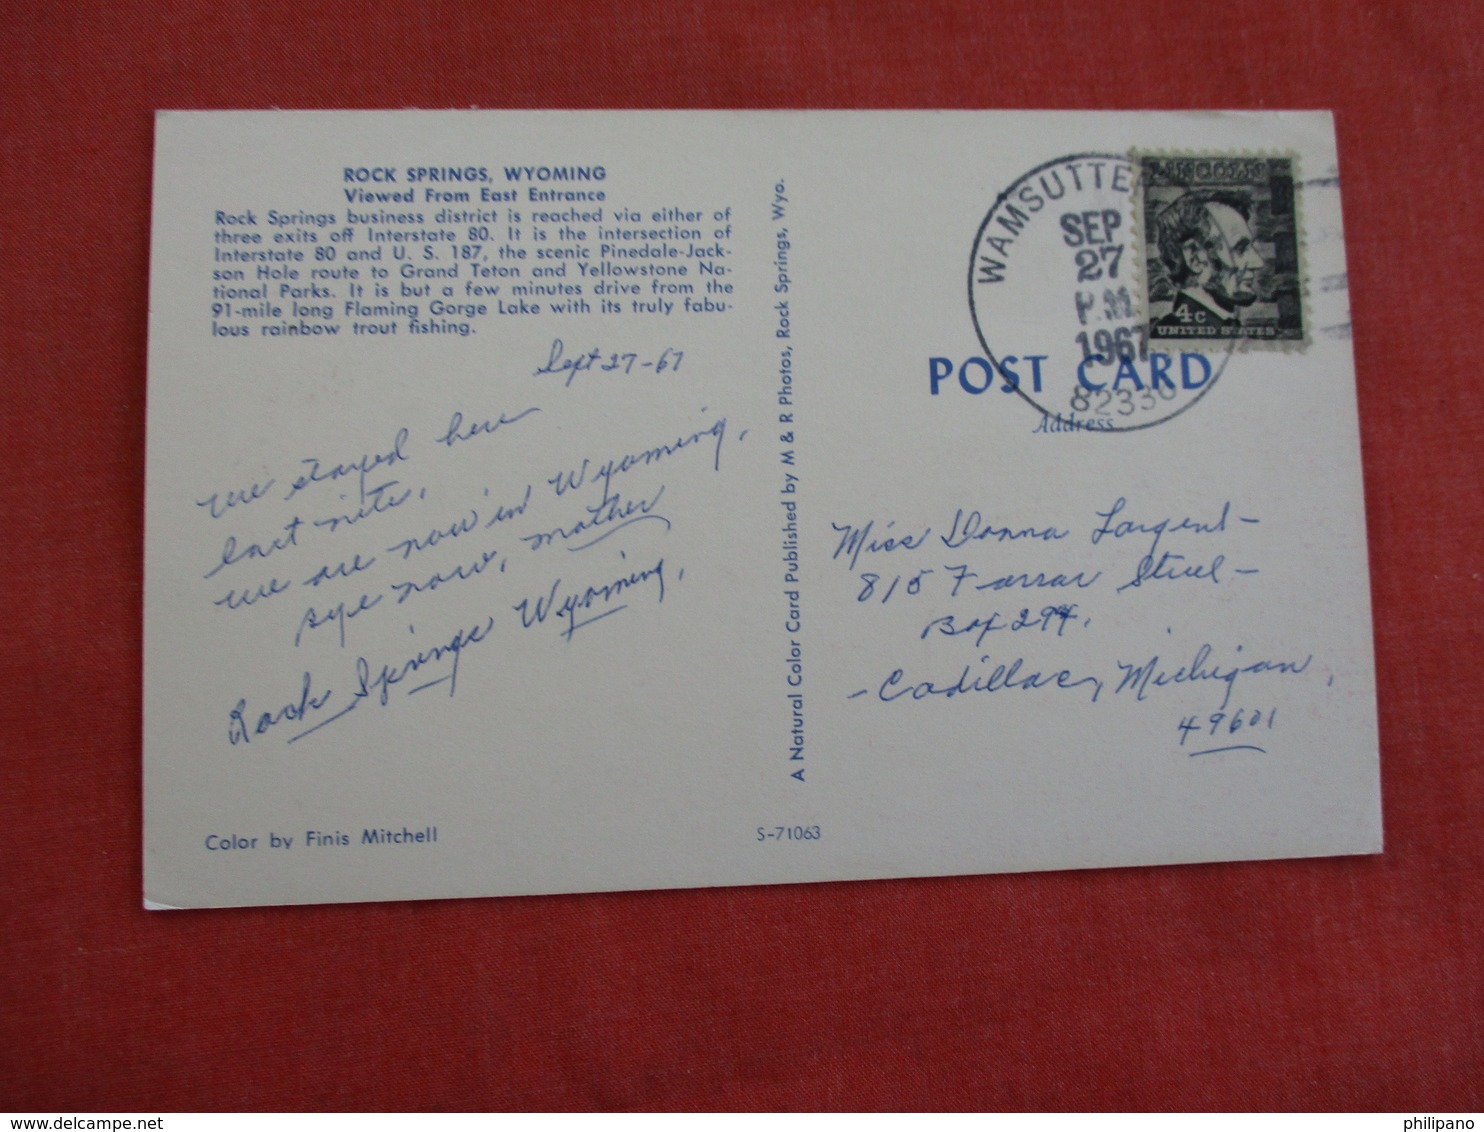 ROCK SPRINGS, WYOMING
Viewed From East Entrance
Rock Springs business district is reached via either of
three exits off Interstate 80. It is the intersection of
Interstate 80 and U. S. 187, the scenic Pinedale-Jack-
son Hole route to Grand Teton and Yellowstone Na-
tional Parks. It is but a few minutes drive from the
91-mile long Flaming Gorge Lake with its truly fabu-
lous rainbow trout fishing.
Sept 27-67
We stayed here
last nite,
we are now in Wyoming,
bye now, mother
Rock Springs Wyoming,
Color by Finis Mitchell
S-71063
A Natural Color Card Published by M & R Photos, Rock Springs, Wyo.
WAMSUTTE
SEP
27
P.M.
1967
82336
LINCOLN
4c
UNITED STATES
POST CARD
Address
Miss Donna Largent-
815 Farrar Street-
Box 294,
-Cadillac, Michigan,
49601
www.delcampe.net
philipano